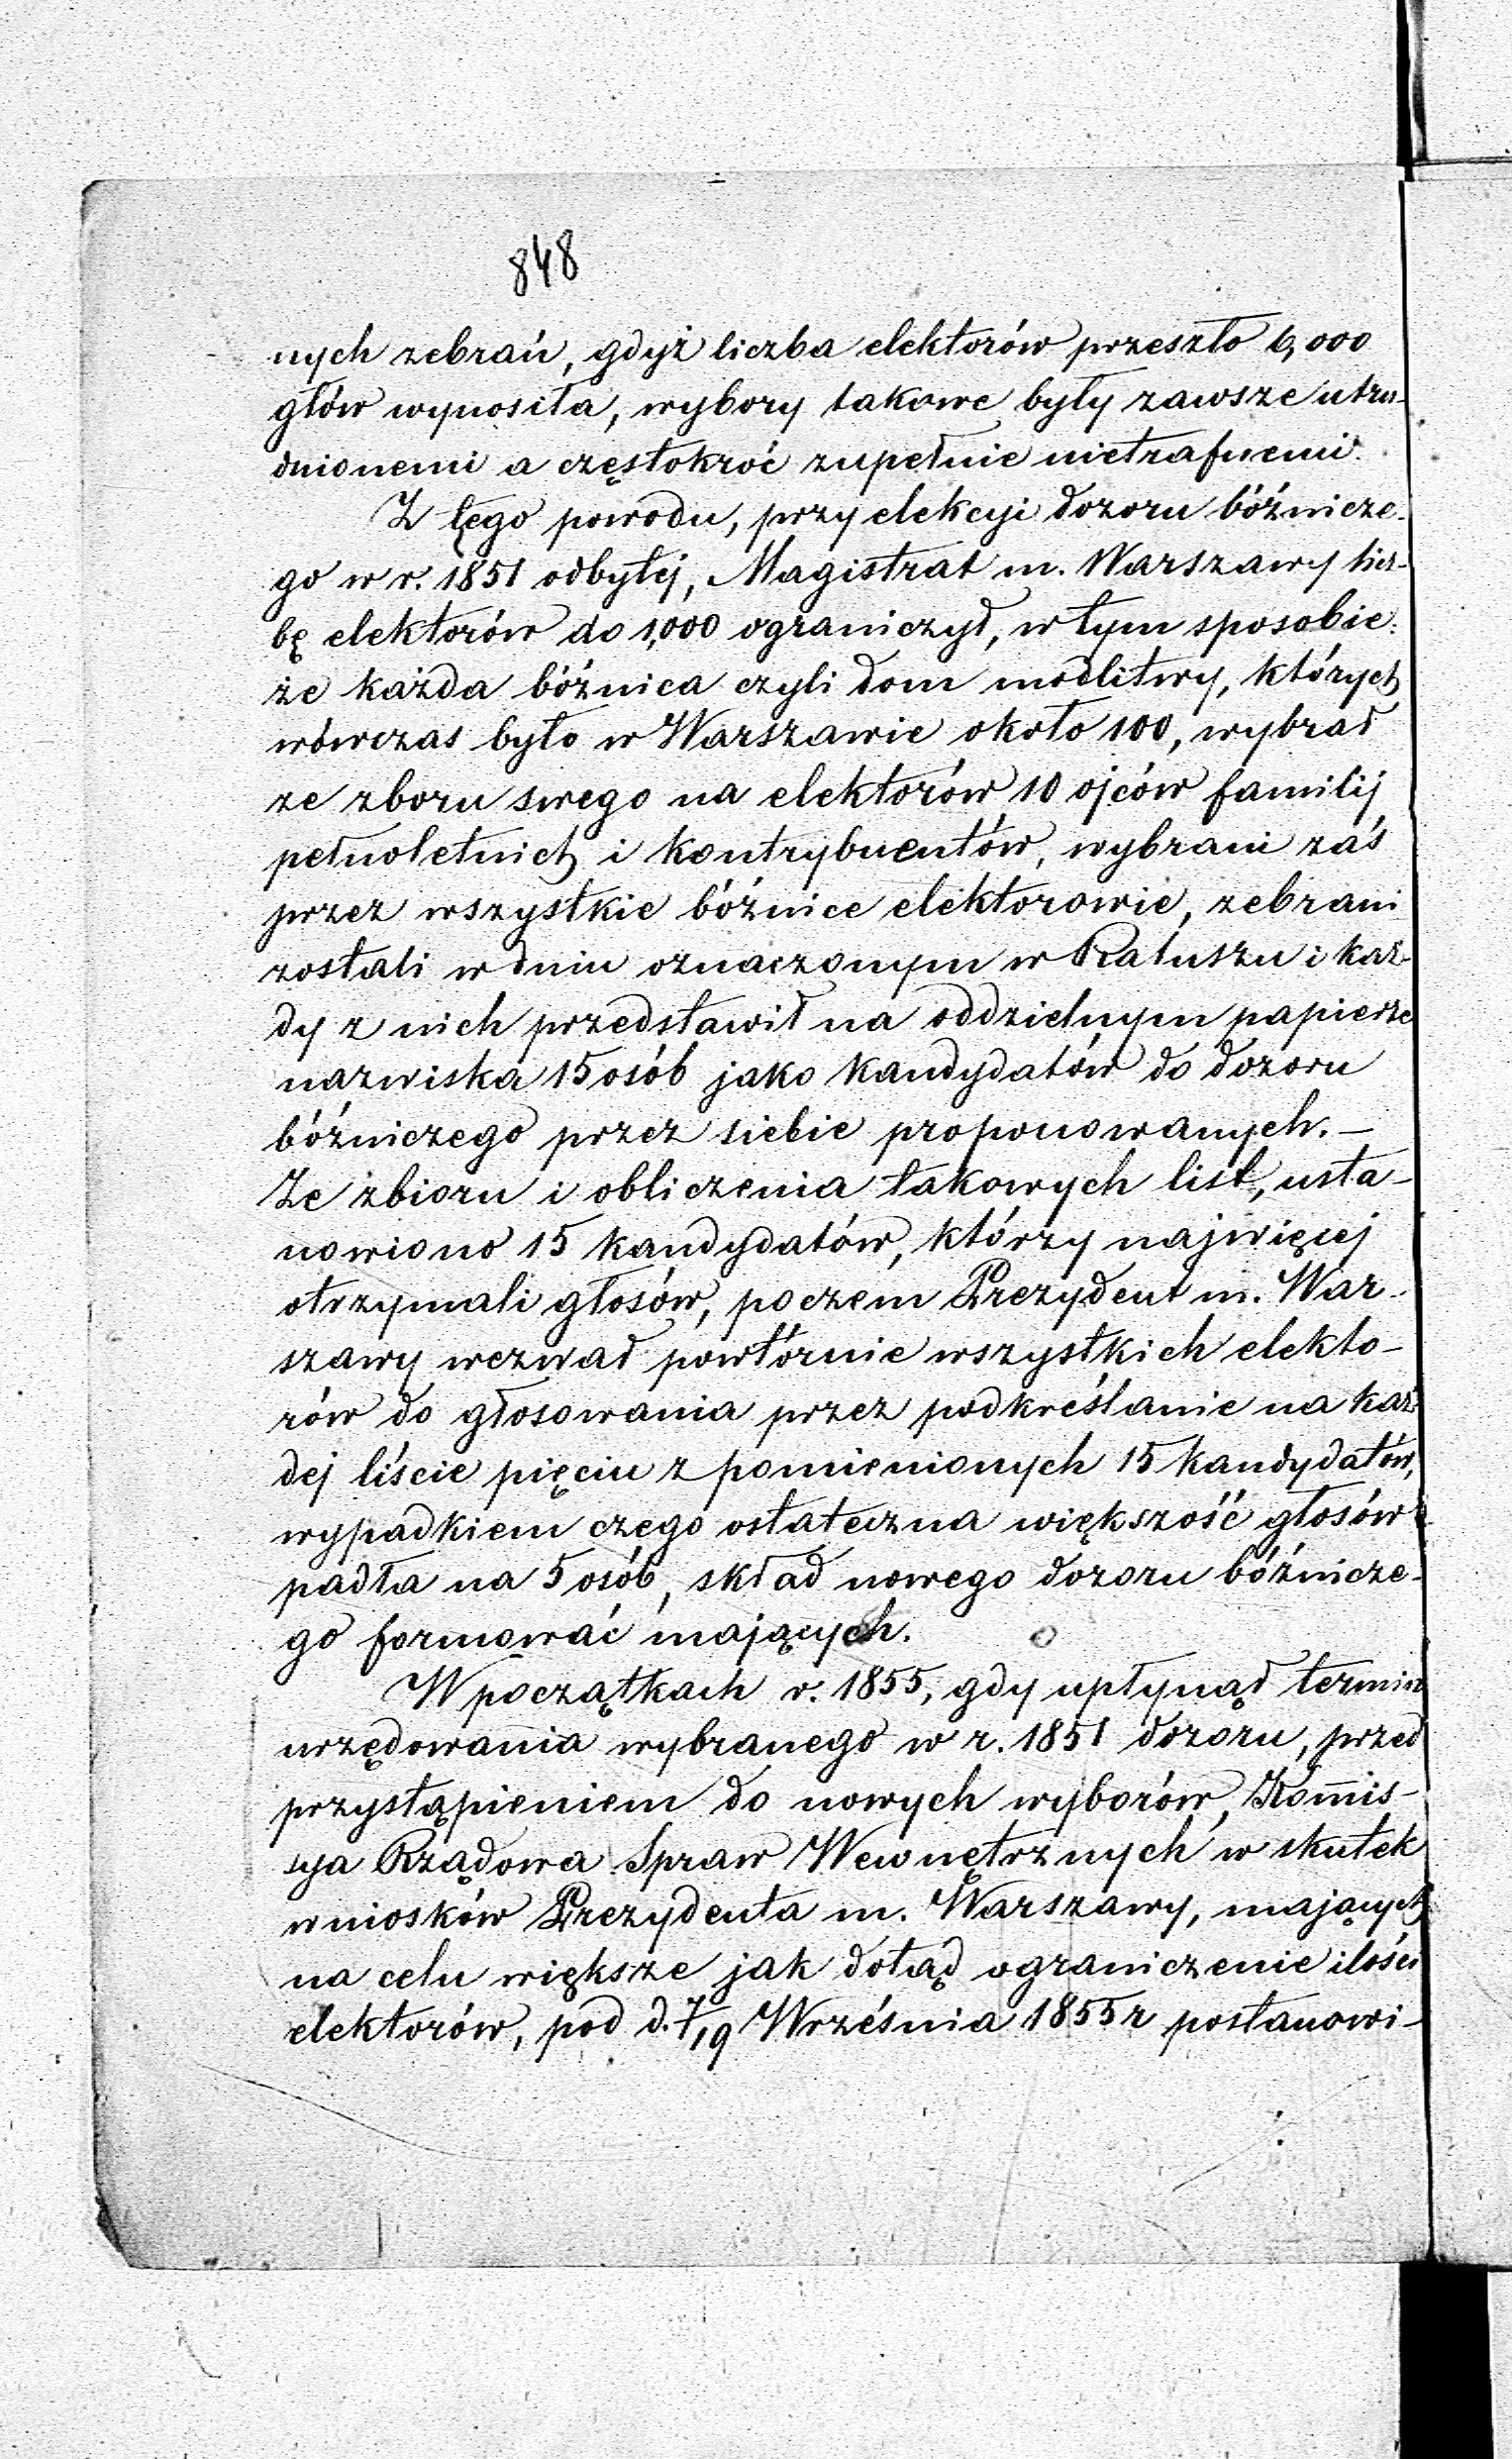 848
nych zebrań, gdyż liczba elektorów przeszło 6,000
głów wynosiła, wybory takowe były zawsze utru-
dnionemi a częstokroć zupełnie nietrafnemi.
Z tego powodu, przy elekcyi dozoru bóźnicze-
go w r. 1851 odbyłej, Magistrat m. Warszawy licz-
bę elektorów do 1,000 ograniczył, w tym sposobie:
że każda bóźnica czyli dom modlitwy, których
wówczas było w Warszawie około 100, wybrał
ze zboru swego na elektorów 10 ojców familij
pełnoletnich i kontrybuentów, wybrani zaś
przez wszystkie bóźnice elektorowie, zebrani
zostali w dniu oznaczonym w Ratuszu i każ-
dy z nich przedstawił na oddzielnym papierze
nazwiska 15 osób jako kandydatów do dozoru
bóźniczego przez siebie proponowanych. —
Ze zbioru i obliczenia takowych list, usta-
nowiono 15 kandydatów, którzy najwięcej
otrzymali głosów, poczem Prezydent m. War-
szawy wezwał powtórnie wszystkich elekto-
rów do głosowania przez podkreślanie na każ-
dej liście pięciu z pomienionych 15 kandydatów,
wypadkiem czego ostateczna większość głosów
padła na 5 osób, skład nowego dozoru bóźnicze-
go formować mających.
W początkach r. 1855, gdy upłynął termin
urzędowania wybranego w r. 1851 dozoru, przed
przystąpieniem do nowych wyborów, Kom̄is-
sya Rządowa Spraw Wewnętrznych w skutek
wniosków Prezydenta m. Warszawy, mających
na celu większe jak dotąd ograniczenie ilości
elektorów, pod d. 7/19 Września 1855 r postanowi-